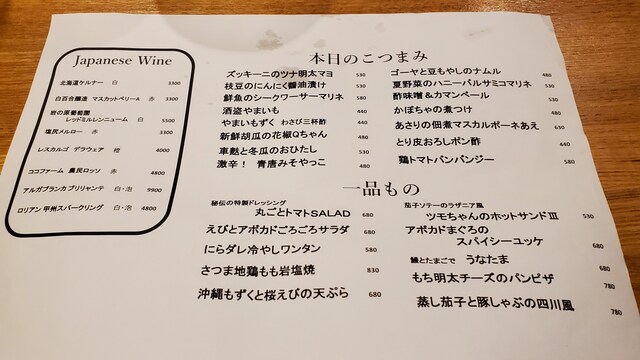 Japanese Wine
北海道ケルナー 白 3300
白百合醸造 マスカットベリーA 赤 3300
岩の原葡萄園
レッドミルレンニューム 白 5500
塩尻メルロー 赤 3300
レスカルゴ デラウェア 橙 4000
ココファーム 農民ロッソ 赤 4800
アルガブランカブリリャンテ 白・泡 9900
ロリアン 甲州スパークリング 白・泡 4800
本日のこつまみ
ズッキーニのツナ明太マヨ 530
枝豆のにんにく醤油漬け 530
鮮魚のシークワーサーマリネ 580
酒盗やまいも 440
やまいもずく わさび三杯酢 440
新鮮胡瓜の花椒Qちゃん 480
車麩と冬瓜のおひたし 530
激辛! 青唐みそやっこ 480
ゴーヤと豆もやしのナムル 480
夏野菜のハニーバルサミコマリネ 530
酢味噌&カマンベール 530
かぼちゃの煮つけ 480
あさりの佃煮マスカルポーネあえ 630
とり皮おろしポン酢 440
鶏トマトバンバンジー 580
一品もの
秘伝の特製ドレッシング
丸ごとトマトSALAD 680
えびとアボカドごろごろサラダ 680
にらダレ冷やしワンタン 580
さつま地鶏もも岩塩焼 830
沖縄もずくと桜えびの天ぷら 680
茄子ソテーのラザニア風
ツモちゃんのホットサンドⅢ 530
アボカドまぐろの
スパイシーユッケ 680
鰻とたまごで うなたま 680
もち明太チーズのパンピザ 780
蒸し茄子と豚しゃぶの四川風 780